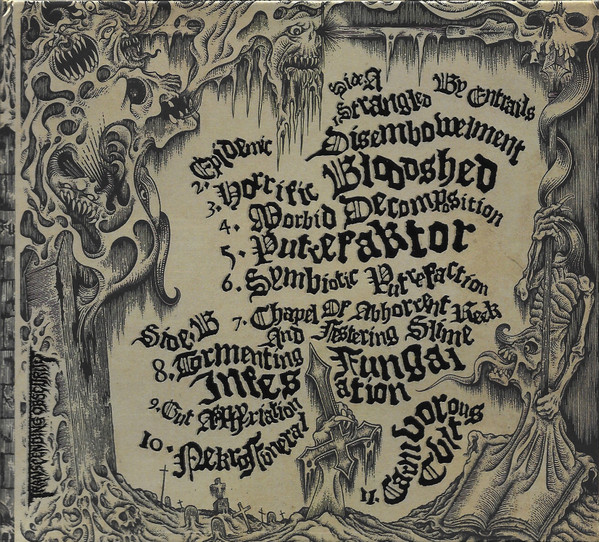 Side A
1. Strangled By Entrails
2. Epidemic Disembowelment
3. Horrific Bloodshed
4. Morbid Decomposition
5. Putrefaktor
6. Symbiotic Putrefaction
Side B
7. Chapel Of Abhorrent Reek
And Festering Slime
8. Tormenting Fungal
Infestation
9. Cut
10. NekroFuneral
11. Carnivorous
Cult
Transcending Obscurity